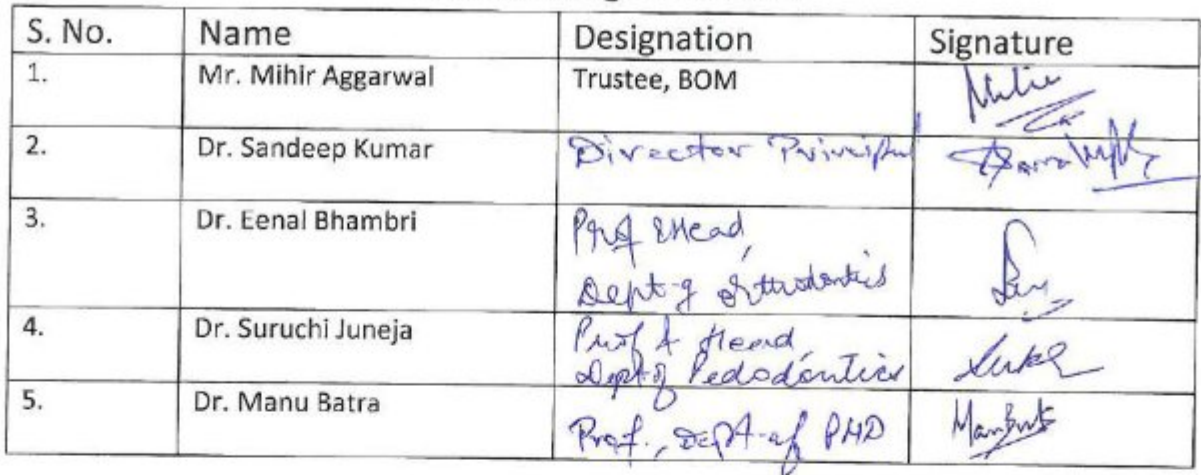 S. No. Name Designation Signature
1. Mr. Mihir Aggarwal Trustee, BOM
2. Dr. Sandeep Kumar Director Principal
3. Dr. Eenal Bhambri Prof & Head,
Dept of Orthodontics
4. Dr. Suruchi Juneja Prof & Head,
Dept of Pedodontics
5. Dr. Manu Batra
Prof., Dept of PHD